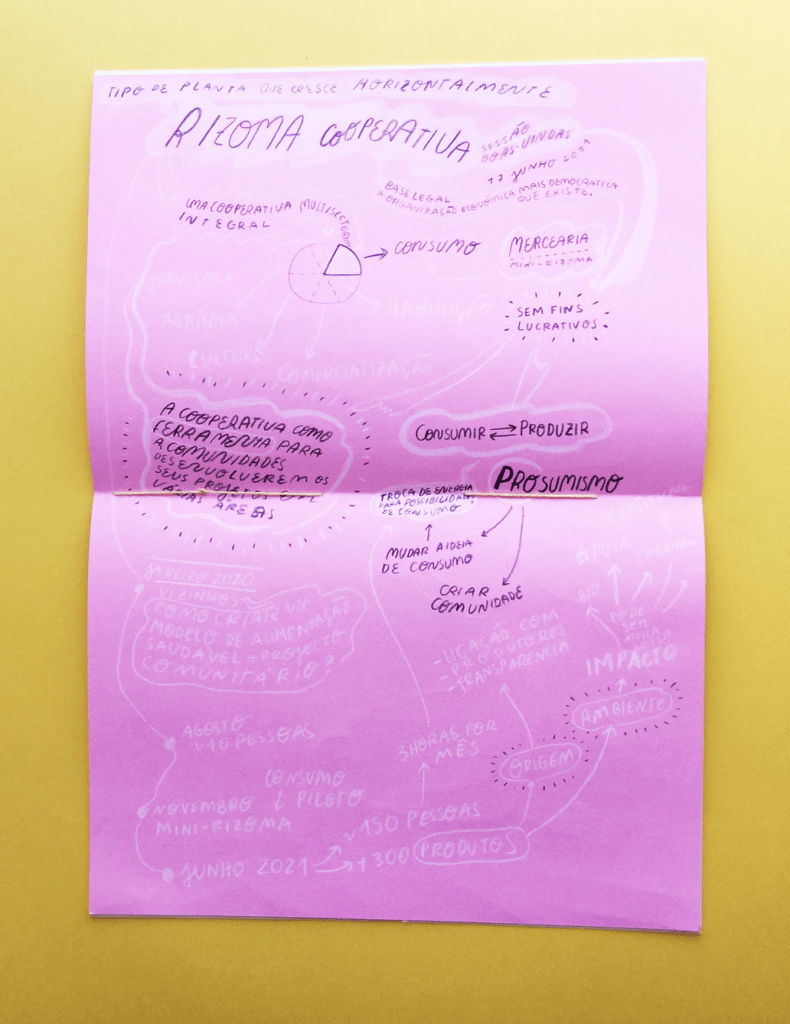 TIPO DE PLANTA QUE CRESCE HORIZONTALMENTE
RIZOMA COOPERATIVA
SESSÃO
BOAS-VINDAS
17 JUNHO 2021
BASE LEGAL
A ORGANIZAÇÃO ECONÓMICA MAIS DEMOCRATICA
QUE EXISTE.
UMA COOPERATIVA MULTISECTORIAL
INTEGRAL
CONSUMO
MERCEARIA
MINI-RIZOMA
SERVIÇOS
AGRÍCOLA
CULTURA
COMERCIALIZAÇÃO
HABITAÇÃO
SEM FINS
LUCRATIVOS
A COOPERATIVA COMO
FERRAMENTA PARA
A COMUNIDADES
DESENVOLVEREM OS
SEUS PROJETOS EM
VÁRIAS ÁREAS
CONSUMIR ⇄ PRODUZIR
PROSUMISMO
TROCA DE ENERGIA
PARA POSSIBILIDADE
DE CONSUMO
MUDAR A IDEIA
DE CONSUMO
CRIAR
COMUNIDADE
JANEIRO 2020
VIZINHOS
COMO CRIAR UM
MODELO DE ALIMENTAÇÃO
SAUDÁVEL + PROJECTO
COMUNITÁRIO?
AGOSTO
~40 PESSOAS
CONSUMO
NOVEMBRO ↓ PILOTO
MINI-RIZOMA
JUNHO 2021
150 PESSOAS
+300 PRODUTOS
3 HORAS POR
MÊS
- LIGAÇÃO COM
- PRODUTORES
- TRANSPARÊNCIA
ORIGEM
AMBIENTE
IMPACTO
PODE
SER
MUITA
BIO
ÉPOCA